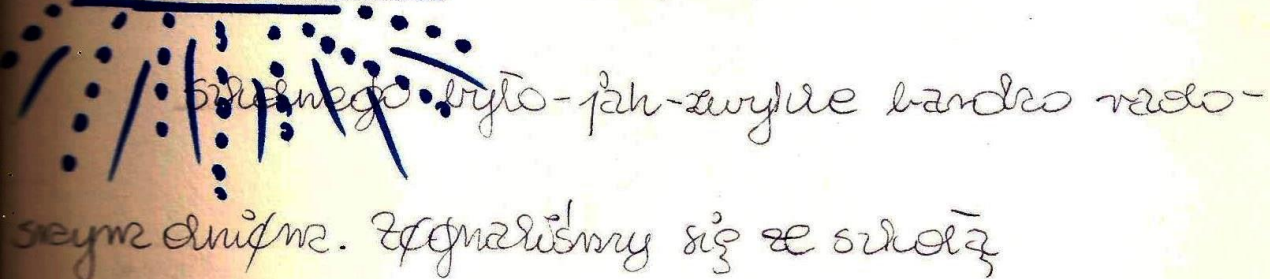 szkolnego było - jak - zwykle bardzo rado-
snym dniem. Żegnaliśmy się ze szkołą